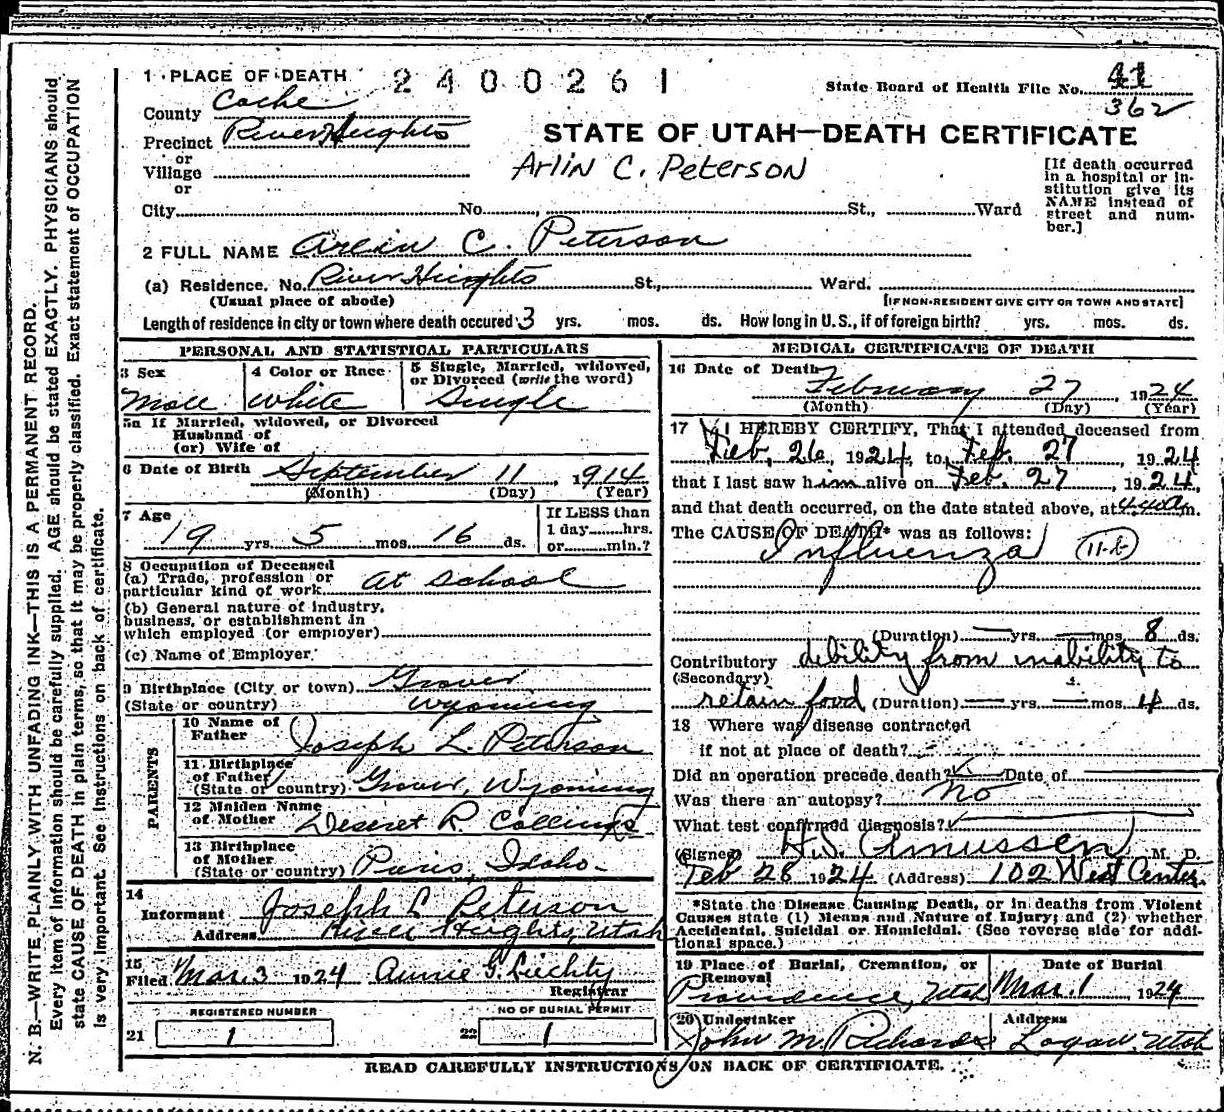 1 PLACE OF DEATH 2400261
State Board of Health File No. 41
362
County Cache
Precinct River Heights
or
Village
or
STATE OF UTAH—DEATH CERTIFICATE
Arlin C. Peterson
[If death occurred in a hospital or institution give its NAME instead of street and number.]
City No. St., Ward
2 FULL NAME Arlin C. Peterson
(a) Residence, No. River Heights St., Ward.
(Usual place of abode) [IF NON-RESIDENT GIVE CITY OR TOWN AND STATE]
Length of residence in city or town where death occured 3 yrs. mos. ds. How long in U. S., if of foreign birth? yrs. mos. ds.
PERSONAL AND STATISTICAL PARTICULARS
3 Sex
Male
4 Color or Race
White
5 Single, Married, widowed,
or Divorced (write the word)
Single
5a If Married, widowed, or Divorced
Husband of
(or) Wife of
6 Date of Birth September 11, 1914
(Month) (Day) (Year)
7 Age
19 yrs. 5 mos. 16 ds.
If LESS than
1 day hrs.
or min.?
8 Occupation of Deceased
(a) Trade, profession or
particular kind of work at school
(b) General nature of industry,
business, or establishment in
which employed (or employer)
(c) Name of Employer
9 Birthplace (City or town) Grover
(State or country) Wyoming
PARENTS
10 Name of
Father Joseph L. Peterson
11 Birthplace
of Father
(State or country) Grover, Wyoming
12 Maiden Name
of Mother Deseret R. Collings
13 Birthplace
of Mother
(State or country) Paris, Idaho
14
Informant Joseph L Peterson
Address River Heights, Utah
15
Filed Mar. 3 1924 Annie G. Liechty
Registrar
REGISTERED NUMBER
21 1
NO OF BURIAL PERMIT
22 1
MEDICAL CERTIFICATE OF DEATH
16 Date of Death
February 27, 1924
(Month) (Day) (Year)
17 I HEREBY CERTIFY, That I attended deceased from
Feb, 26, 1924, to Feb. 27, 1924
that I last saw him alive on Feb. 27, 1924,
and that death occurred, on the date stated above, at m.
The CAUSE OF DEATH* was as follows:
Influenza 11-b
(Duration) — yrs. — mos. 8 ds.
Contributory debility from inability to
(Secondary)
retain food (Duration) — yrs. — mos. 4 ds.
18 Where was disease contracted
if not at place of death?
Did an operation precede death? Date of
Was there an autopsy? No
What test confirmed diagnosis?
(Signed) H.S. Amussen M. D.
Feb 28 1924 (Address) 102 West Center
*State the Disease Causing Death, or in deaths from Violent
Causes state (1) Means and Nature of Injury; and (2) whether
Accidental, Suicidal or Homicidal. (See reverse side for addi-
tional space.)
19 Place of Burial, Cremation, or
Removal
Providence, Utah
Date of Burial
Mar. 1, 1924
20 Undertaker
John M. Richards
Address
Logan, Utah
READ CAREFULLY INSTRUCTIONS ON BACK OF CERTIFICATE.
N. B.—WRITE PLAINLY WITH UNFADING INK—THIS IS A PERMANENT RECORD.
Every item of information should be carefully supplied. AGE should be stated EXACTLY. PHYSICIANS should
state CAUSE OF DEATH in plain terms, so that it may be properly classified. Exact statement of OCCUPATION
is very important. See instructions on back of certificate.